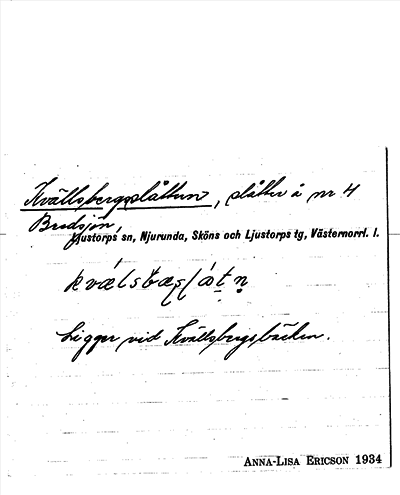 Kvällsbergsslåtten, slåtter å nr 4
Bredsjön,
Ljustorps sn, Njurunda, Sköns och Ljustorps tg, Västernorrl. l.
Ligger vid Kvällsbergsbäcken.
ANNA-LISA ERICSON 1934